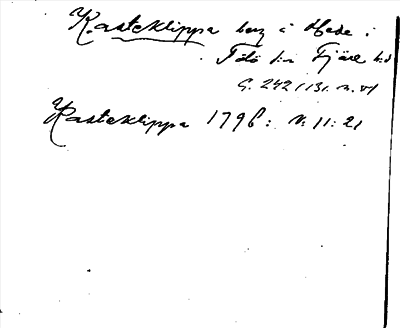 Kasteklippa berg å Hede i
Tölö sn Fjäre hd
G. 242 / 131 n. vf
Kasteklippa 1796: N: 11: 21